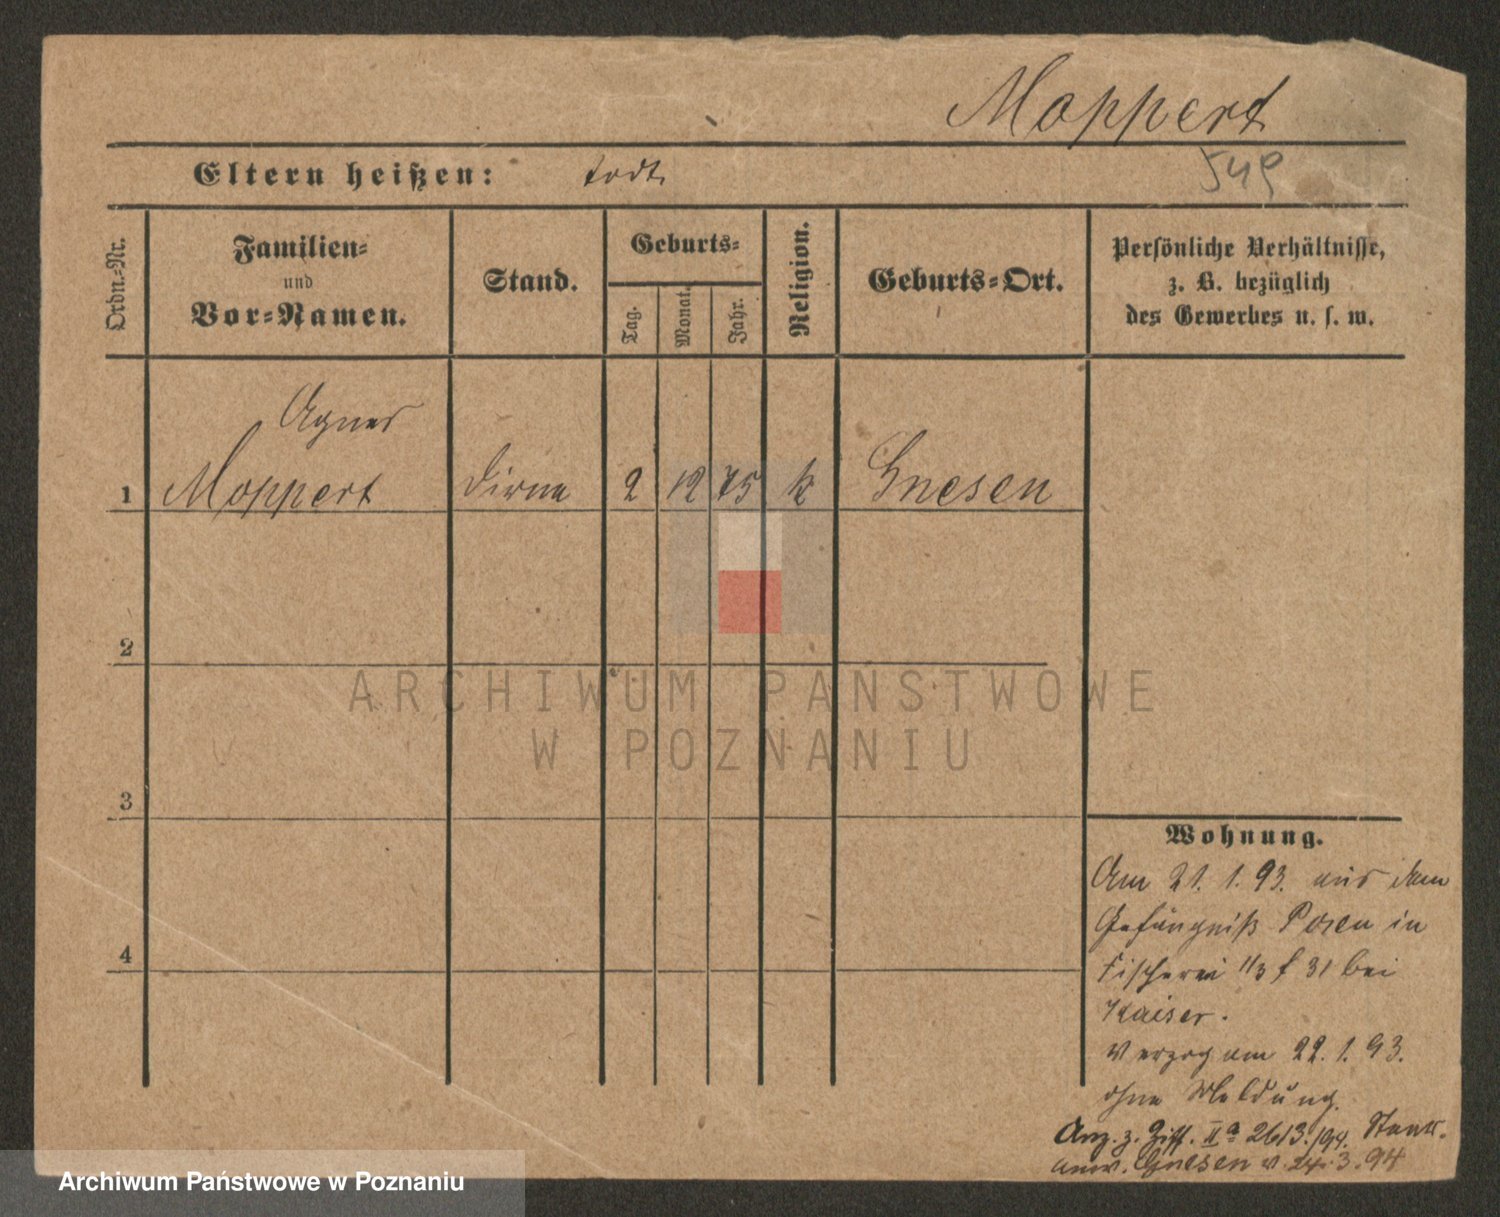 Moppert
549
Eltern heißen: todt
Ordn.-Nr.
Familien-
und
Vor-Namen.
Stand.
Geburts-
Tag.
Monat.
Jahr.
Religion.
Geburts-Ort.
Persönliche Verhältnisse,
z. B. bezüglich
des Gewerbes u. s. w.
Agnes
1 Moppert Dirne 2 12 75 k Gnesen
2
3
4
ARCHIWUM PAŃSTWOWE
W POZNANIU
Wohnung.
Am 21. 1. 93. aus dem
Gefängniß Posen in
Fischerei 11/3 f 31 bei
Kaiser.
Verzog am 22. 1. 93.
ohne Meldung.
Anz. z. Ziff. IIa 2613./94. Staats-
anw. Gnesen v. 24. 3. 94
Archiwum Państwowe w Poznaniu